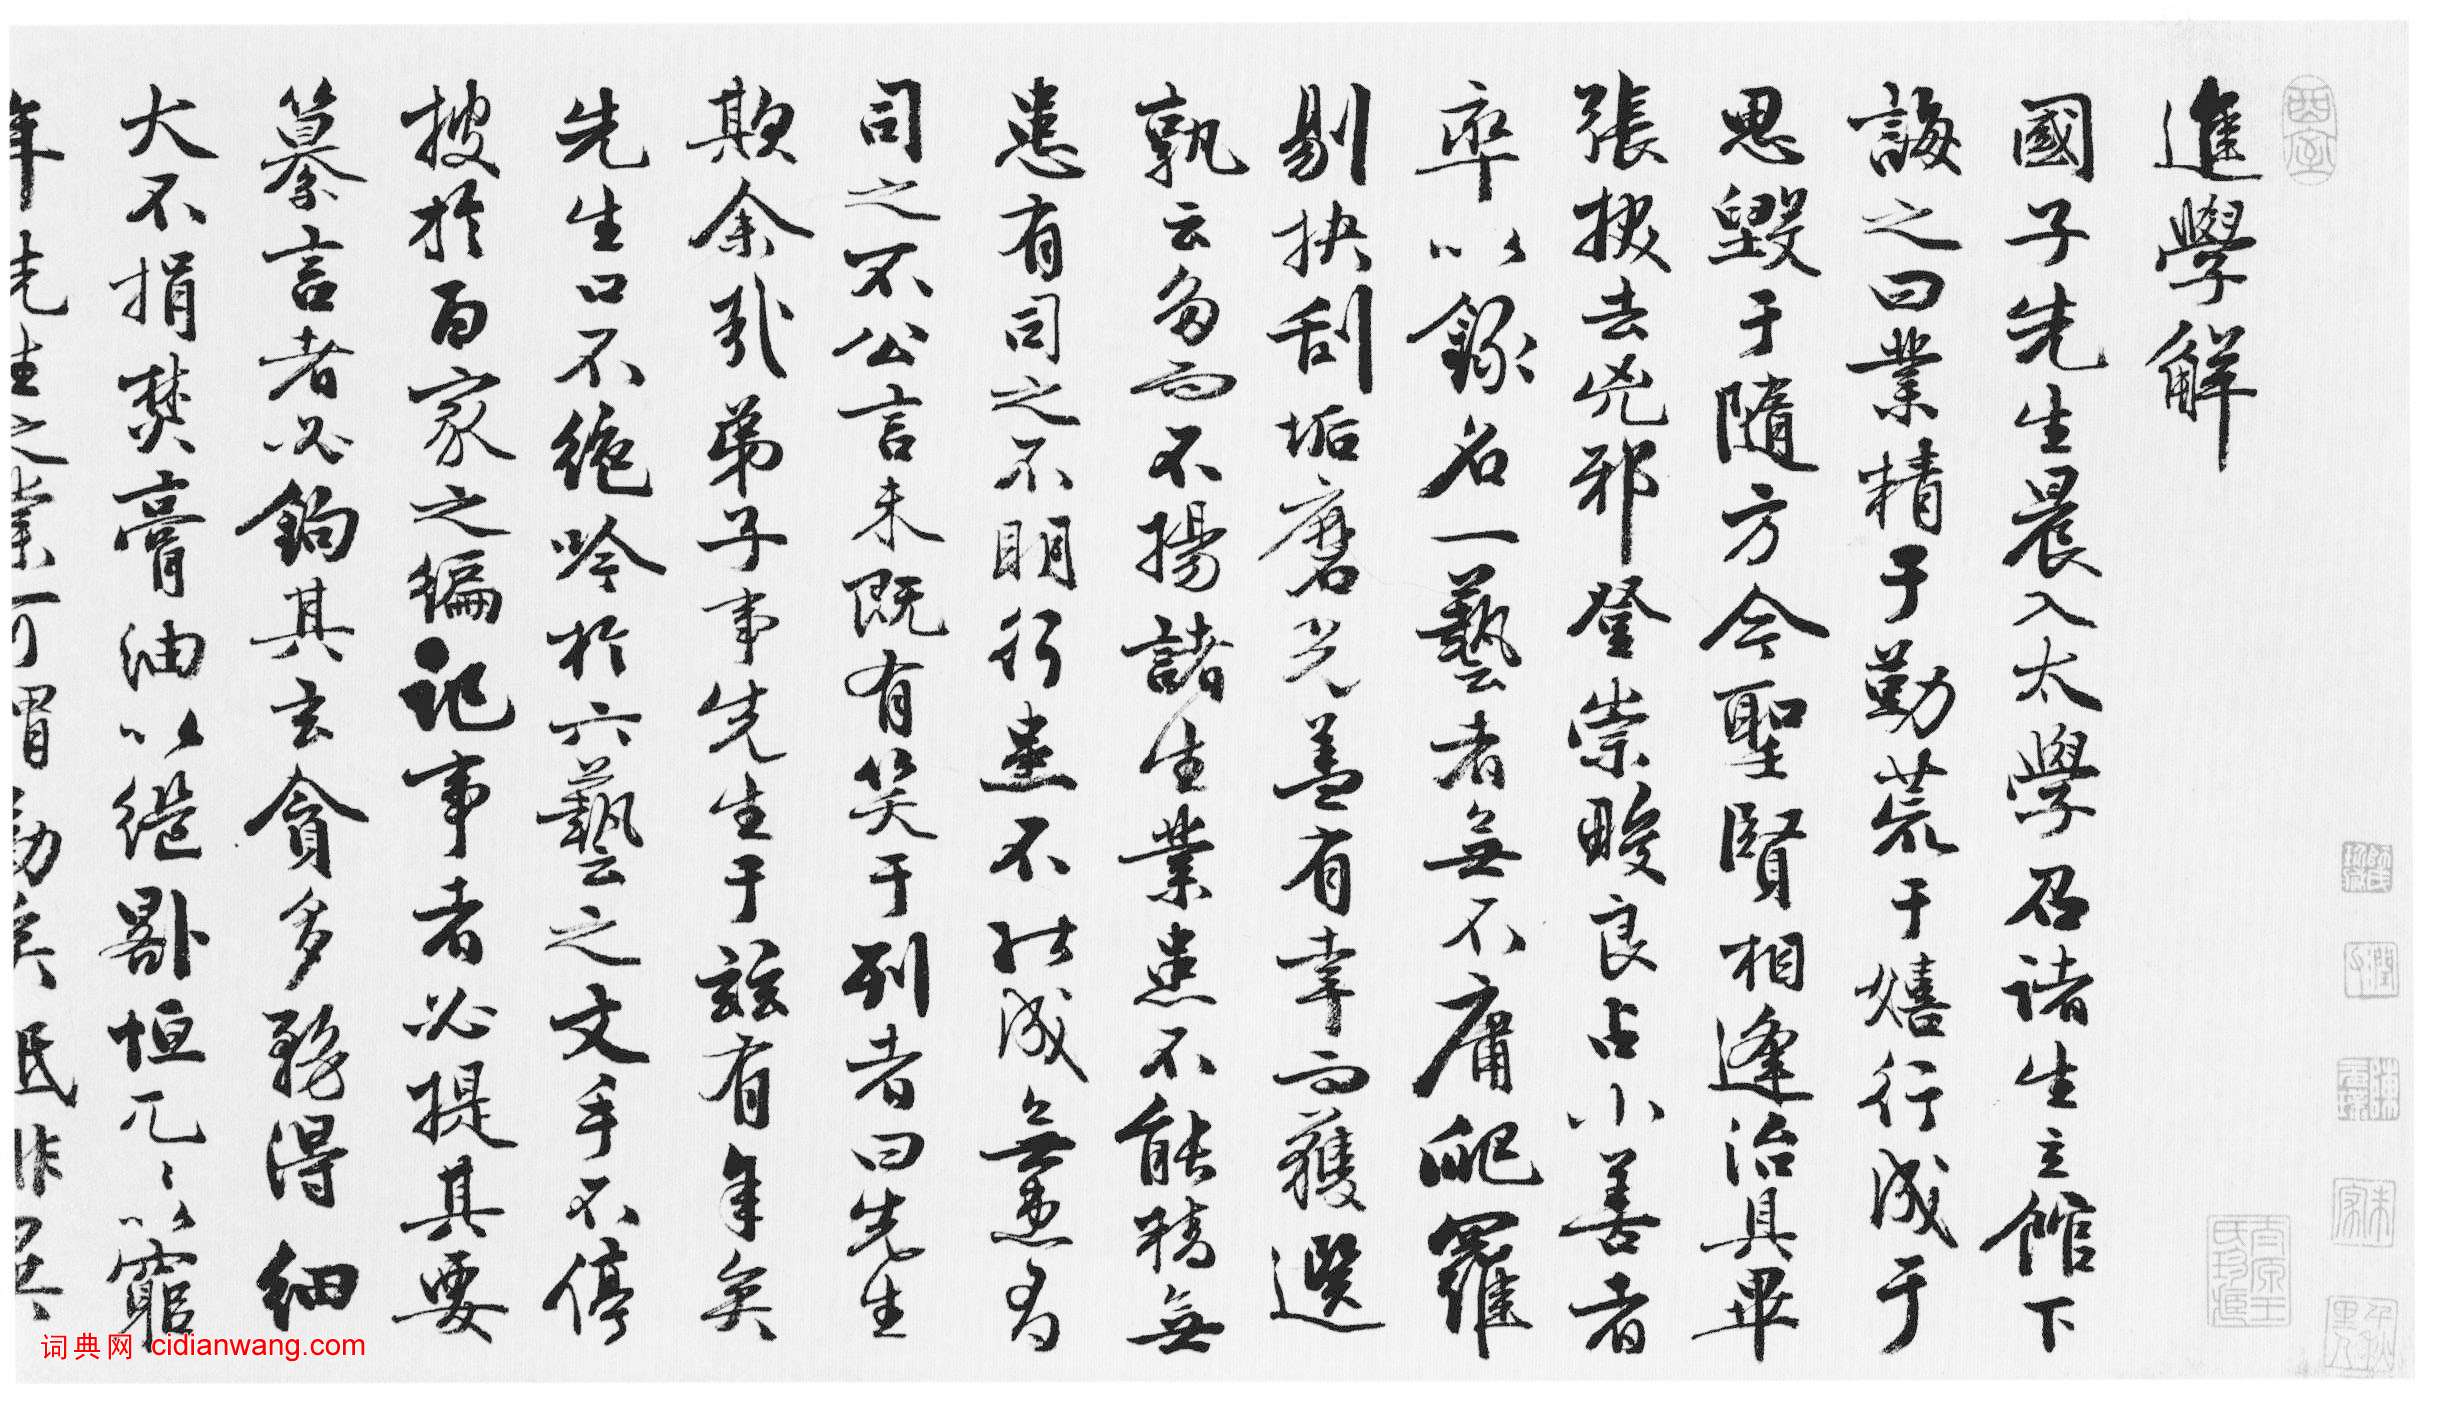 進學解
國子先生晨入太學召諸生立館下
誨之曰業精于勤荒于嬉行成于
思毀于隨方今聖賢相逢治具畢
張拔去兇邪登崇畯良占小善者
率以錄名一藝者無不庸爬羅
剔抉刮垢磨光蓋有幸而獲選
孰云多而不揚諸生業患不能精無
患有司之不明行患不能成無患有
司之不公言未既有笑于列者曰先生
欺余哉弟子事先生于茲有年矣
先生口不絕吟於六藝之文手不停
披於百家之編記事者必提其要
纂言者必鉤其玄貪多務得細
大不捐焚膏油以繼晷恒兀々以窮
年先生之業可謂勤矣
词典网 cidianwang.com